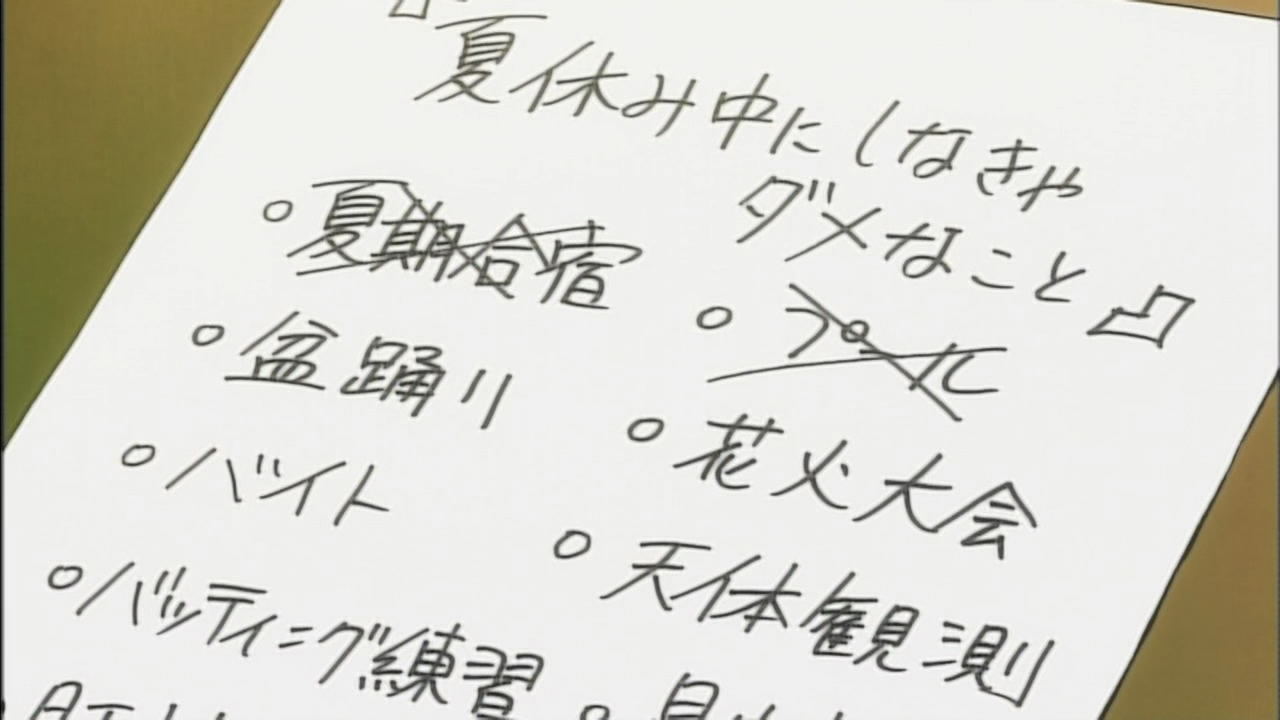 『夏休み中にしなきゃ
ダメなこと』
○夏期合宿
○プール
○盆踊り
○花火大会
○バイト
○天体観測
○バッティング練習